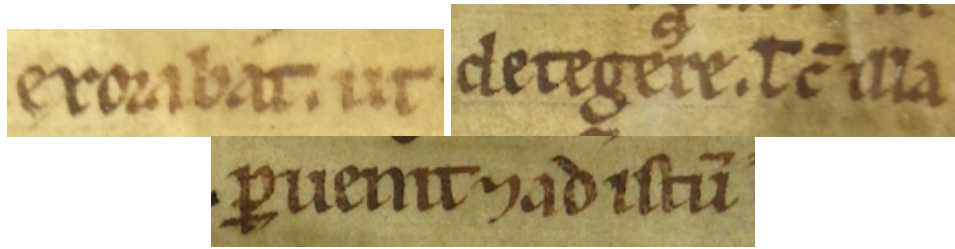 exorabat. ut
detegere. Tc̄ illa
ꝑuenit ⁊ ad istū